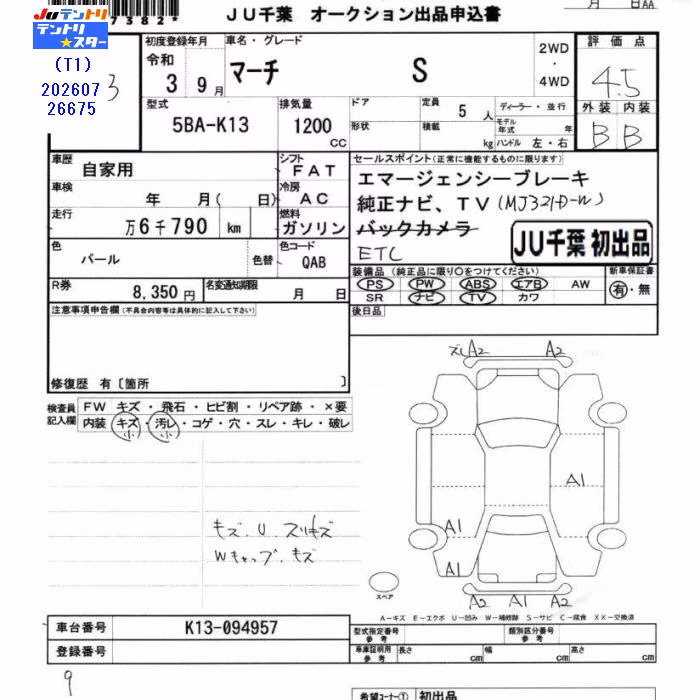 7382*
JU千葉 オークション出品申込書
月 日AA
Juテントリ
テントリ★スター
(T1)
202607
26675
3
初度登録年月
令和
3 9月
車名・グレード
マーチ S
2WD
・
4WD
評価点
4.5
型式
5BA-K13
排気量
1200
CC
ドア
形状
定員
5人
積載
kg
ディーラー・並行
モデル年式 年
ハンドル 左・右
外装 内装
B B
車歴
自家用
シフト
FAT
セールスポイント(正常に機能するものに限ります)
車検
年 月( 日)
冷房
AC
エマージェンシーブレーキ
走行
万6千790 km
燃料
ガソリン
純正ナビ、TV(MJ321D-W)
バックカメラ
ETC
JU千葉 初出品
色
パール
色替
色コード
QAB
R券
8,350円
名変通知期限
月 日
装備品(純正品に限り○をつけてください)
PS PW ABS エアB AW
SR ナビ TV カワ
新車保証書
有・無
後日品
注意事項申告欄(不具合内容等は具体的に記入して下さい)
修復歴 有〔箇所 〕
ズレA2 A2
検査員記入欄
FW キズ・飛石・ヒビ割・リペア跡・×要
内装 キズ・汚レ・コゲ・穴・スレ・キレ・破レ
小 小
A1
A1
キズ、U、スリキズ
Wキャップ、キズ
A1
スペア
A2 A1 A2
A-キズ E-エクボ U-凹み W-補修跡 S-サビ C-腐食 XX-交換済
車台番号 K13-094957
登録番号
型式指定番号 参考
類別区分番号 参考
車庫証明用 参考
長さ cm
幅 cm
高さ cm
9
希望コーナー① 初出品